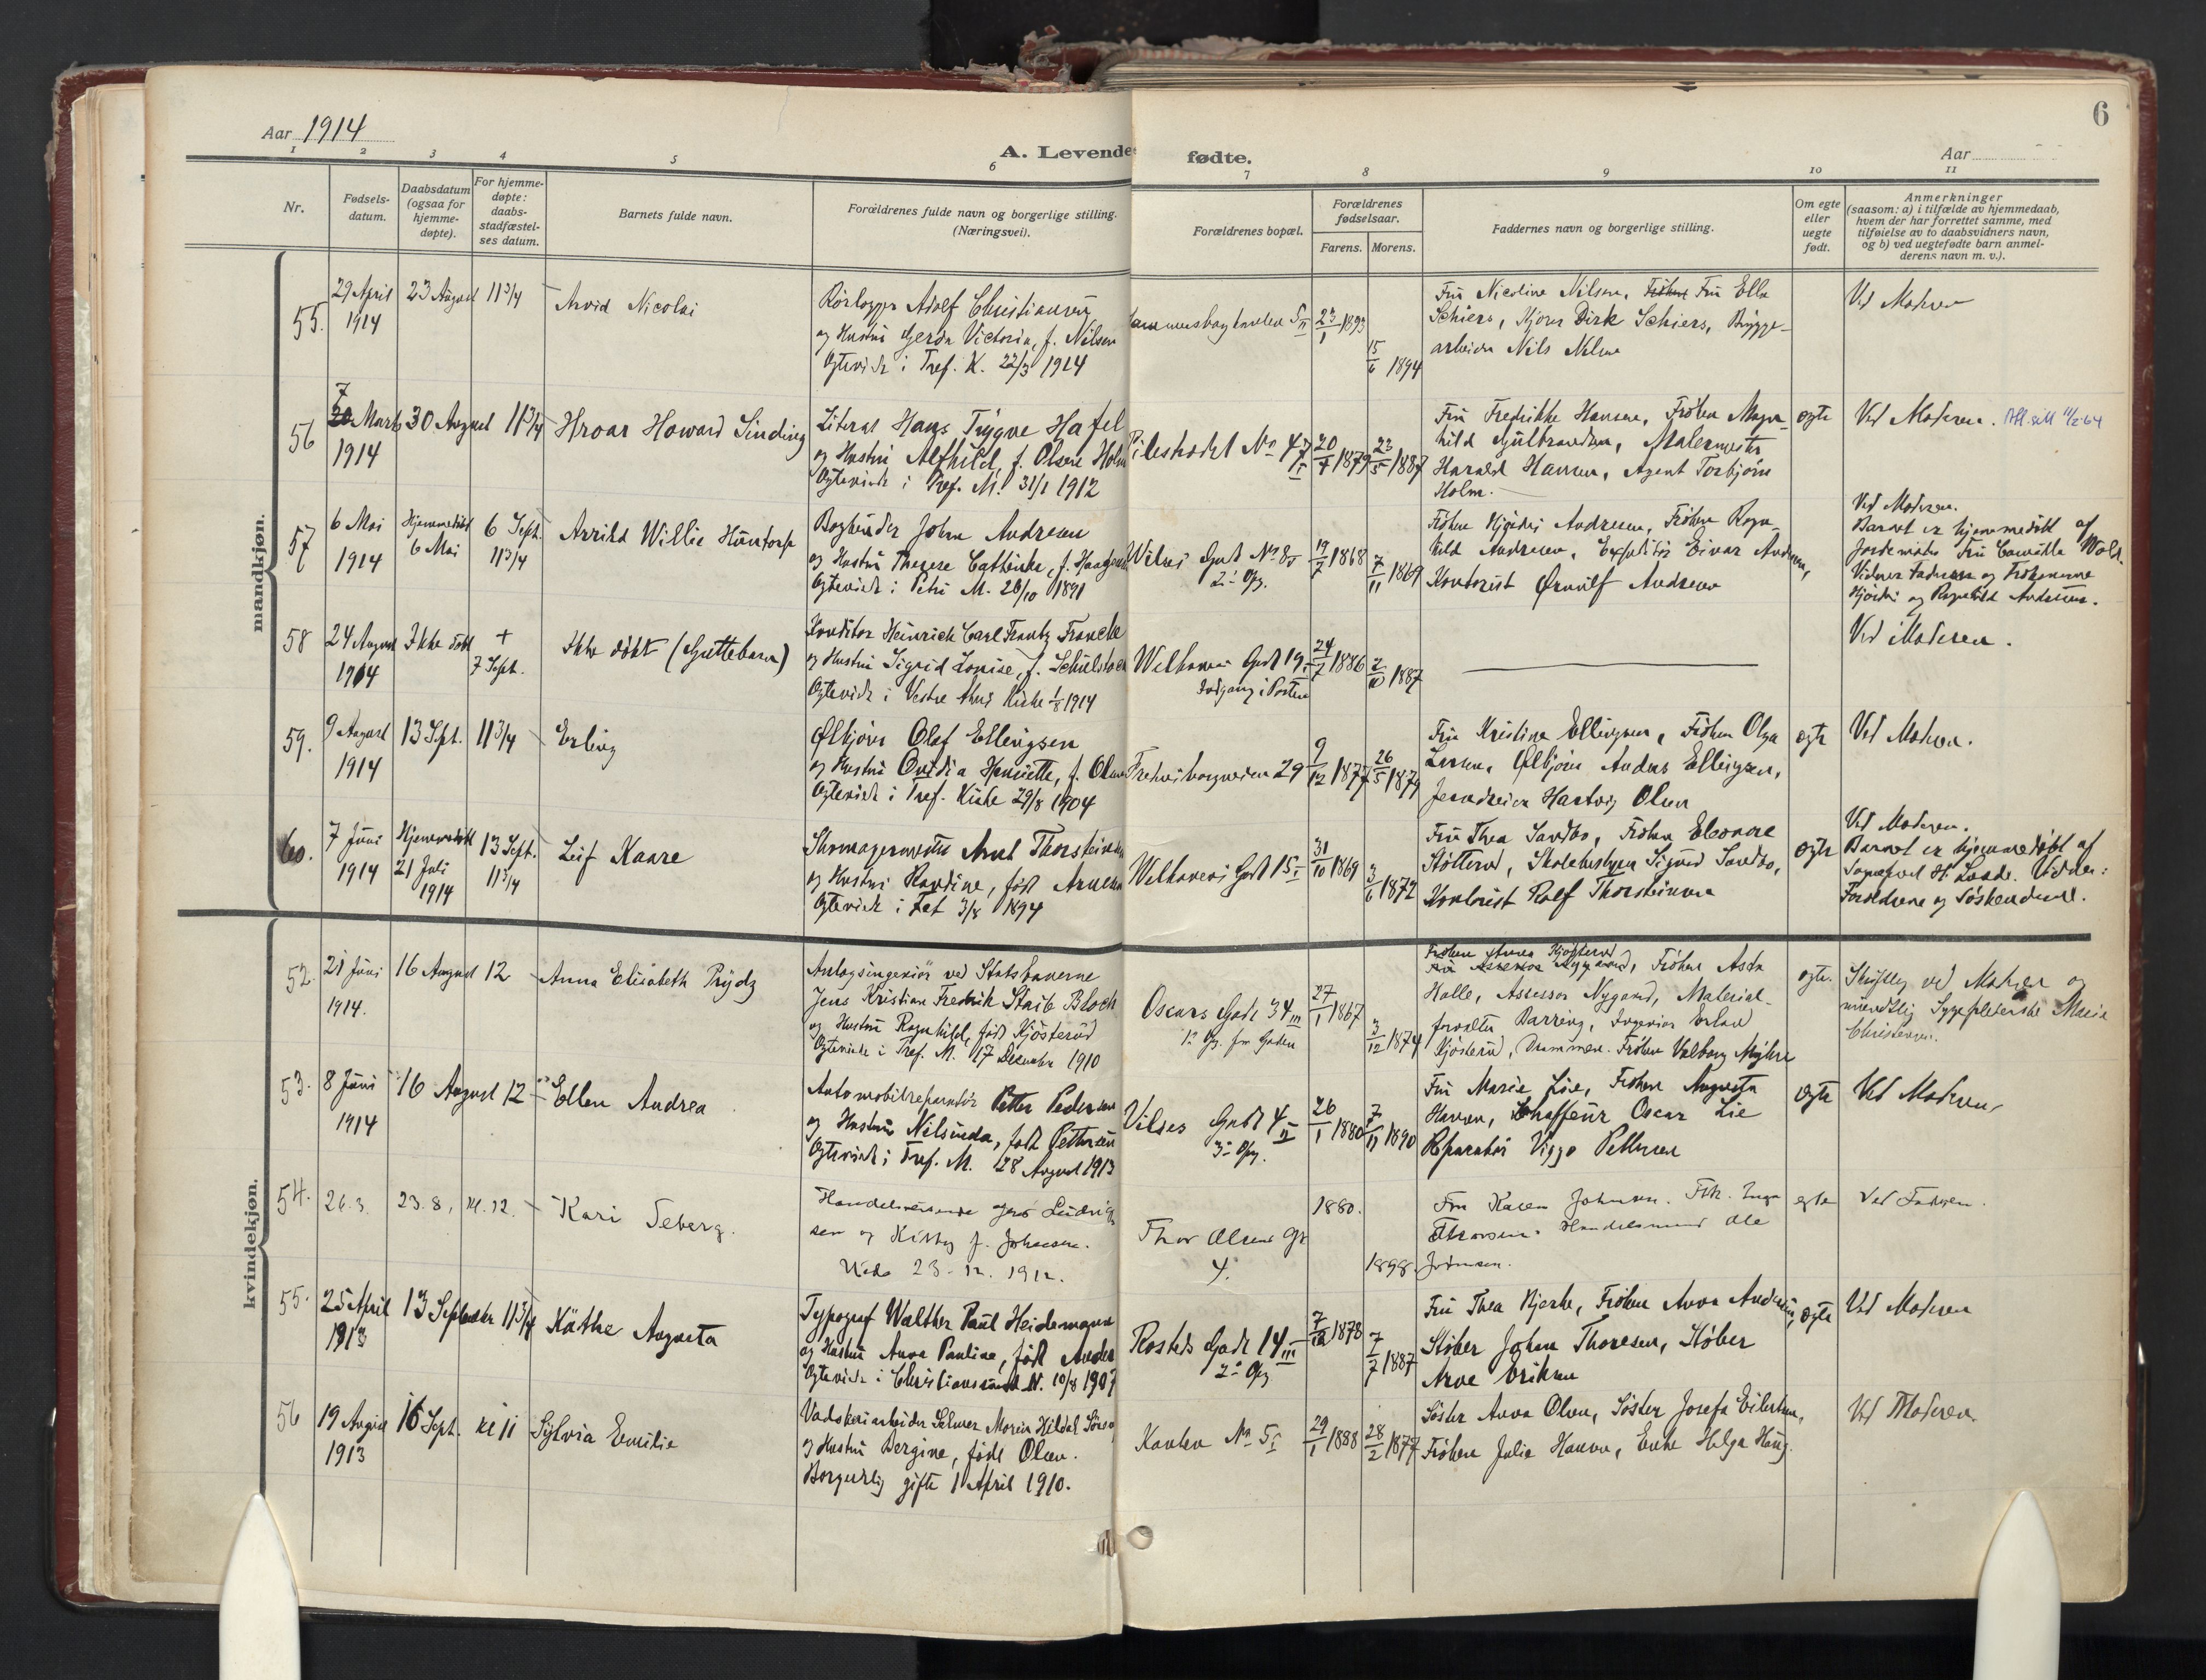 Aar 1914
A. Levende fødte.
Aar
6
1 2 3 4 5 6 7 8 9 10 11
Nr.
Fødsels-
datum.
Daabsdatum
(ogsaa for
hjemme-
døpte).
For hjemme-
døpte:
daabs-
stadfæstel-
ses datum.
Barnets fulde navn.
Forældrenes fulde navn og borgerlige stilling.
(Næringsvei).
Forældrenes bopæl.
Forældrenes
fødselsaar.
Farens. Morens.
Faddernes navn og borgerlige stilling.
Om egte
eller
uegte
født.
Anmerkninger
(saasom: a) i tilfælde av hjemmedaab,
hvem der har forrettet samme, med
tilføielse av to daabsvidners navn,
og b) ved uegtefødte barn anmel-
derens navn m. v.).
mandkjøn.
55.
29 April
1914
23 August
11 3/4
Arvid Nicolai
Adolf Christiansen
og Hustru Gerda Victoria, f. Nilsen
Ægteviede i Tref. K. 22/3 1914
23/1 1893
15/6 1894
Fru Nicoline Nilsen, Fru Ella
Schiers, Dirk Schiers, Brygge-
arbeider Nils Nilsen
Ved Moderen
56
7 Marts
1914
30 August
11 3/4
Hroar Howard Sinding
Literat Hans Trygve Hafel
og Hustru Alfhild, f. Olsen Holm
Ægteviede i Tref. M. 31/1 1912
Pilestrædet No 47 I
20/7 1879
23/5 1887
Fru Fredrikke Hansen, Frøken Magn-
hild Gulbrandsen, Malermester
Harald Hansen, Agent Torbjørn
Holm.
egte
Ved Moderen.
57
6 Mai
1914
Hjemmedøbt
6 Mai
6 Sept.
11 3/4
Arrild Willie Huntorp
Bogbinder Johan Andresen
og Hustru Therese Cathinka, f.
Ægteviede i Petri M. 26/10 1891
Wilses Gade No 8
2den Opg.
1868
7/11 1869
Frøken Hjørdis Andresen, Frøken Ragn-
hild Andresen, Expeditør Einar Andresen,
Kontorist Ørnulf Andresen
Ved Moderen.
Barnet er hjemmedøbt af
Jordemoder Fru Camilla Wold.
Vidner Faderen og Frøknerne
Hjørdis og Ragnhild Andresen.
58
24 August
1914
Ikke døbt
+
7 Sept.
Ikke døbt (Guttebarn)
Konditor Heinrich Carl Frantz Francke
og Hustru Sigrid Louise, f.
Ægteviede i Vestre Kirke 1/8 1914
Welhavens Gade 19
Indgang i Porten
24/7 1886
2/10 1887
Ved Moderen.
59.
9 August
1914
13 Sept.
11 3/4
Erling
Ølkjører Olaf Ellingsen
og Hustru Ovidia Henriette, f. Olsen
Ægteviede i Tref. Kirke 29/8 1904
Fredensborgveien 29
9/12 1877
26/5 1879
Fru Kristine Ellingsen, Frøken Olga
Larsen, Ølkjører Anders Ellingsen,
Jerndreier Hartvig Olsen
egte
Ved Moderen.
60.
7 Juni
1914
Hjemmedøbt
21 Juli
1914
13 Sept.
11 3/4
Leif Kaare
Skomagermester Arnt Thorstensen
og Hustru Randine, født Arnesen
Ægteviede i 3/8 1894
Welhavens Gade 15 I
31/10 1869
3/6 1872
Fru Thea Sandbo, Frøken Eleonore
Støtterud, Skolebestyrer Sigurd Sandbo,
Kontorist Rolf Thorstensen
egte
Ved Moderen.
Barnet er hjemmedøbt af
Sogneprest H. Vidner:
Forældrene og Søskende.
kvindekjøn.
52.
21 Juni
1914.
16 August
12
Anna Elisabeth Prydz
Anlægsingeniør ved Statsbanerne
Jens Kristian Fredrik Staib Bloch
og Hustru Ragnhild, født Kjøsterud
Ægteviede i Tref. M. 17 December 1910
Oscars Gade 34 III
1ste Opg. fra Gaden
27/1 1867
3/12 1874
Frøken Anna Kjøsterud
Frøken Asta
Halle, Assessor Nygaard, Material-
forvalter Barring, Ingeniør Erland
Kjøsterud, Drammen. Frøken Valborg Myhre
egte.
Skriftlig ved Moderen og
mundtlig Sygepleierske Marie
Christensen.
53.
8 Juni
1914
16 August
12
Ellen Andrea
Automobilreparatør Petter Pedersen
og Hustru Nilsinda, født Pettersen
Ægteviede i Tref. M. 28 August 1913
Vilses Gade 4 II
3die Opg.
26/1 1880
7/11 1890
Fru Marie Lie, Frøken Augusta
Hansen, Chaffeur Oscar Lie
Reparatør Viggo Pettersen
egte
Ved Moderen
54.
26.3.
23.8.
kl. 12.
Kari Teberg.
Handelsreisende Ludvig-
sen og Kitty f. Johnsen.
Viede 23-12. 1912.
Thor Olsens gt
4.
1880.
1898.
Fru Karen Johnsen. Frk. Inga
Thorsen. Handelsmand Ole
Johnsen.
egte
Ved Faderen.
55.
25 April
1913
13 September
11 3/4
Käthe Augusta
Typograf Walther Paul Heidemann
og Hustru Anna Pauline, født
Ægteviede i Christianssand N. 10/8 1907
Rosteds Gade 14 III
2den Opg
7/12 1878
7/7 1887
Fru Thea Bjerke, Frøken Anna Andersen,
Støber Johan Thoresen, Støber
Arne Eriksen
egte
Ved Moderen
56
19 August
1913
16 Sept.
kl 11
Sylvia Emilie
Vadskeriarbeider Selmer Morin Hildal
og Hustru Bergine, født Olsen.
Borgerlig gifte 1 April 1910.
Kanten No 5 I
29/1 1888
28/2 1877
Søster Anna Olsen, Søster Josefa Eilertsen,
Frøken Julie Hansen, Enke Helga Haug.
Ved Moderen.